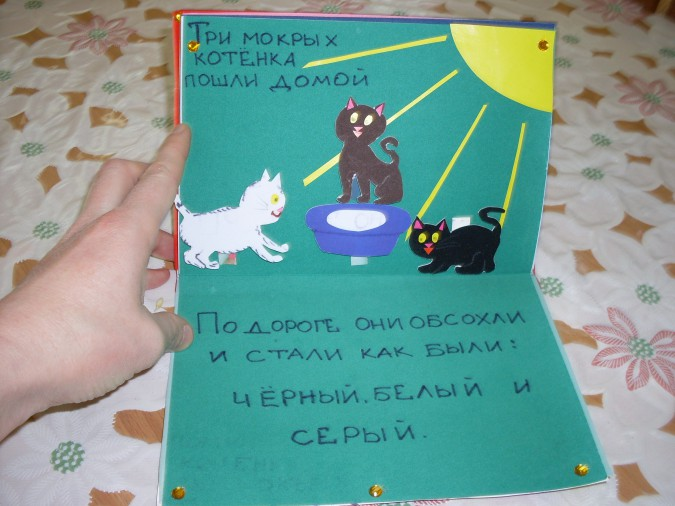 ТРИ МОКРЫХ
КОТЁНКА
ПОШЛИ ДОМОЙ
ПО ДОРОГЕ ОНИ ОБСОХЛИ
И СТАЛИ КАК БЫЛИ:
ЧЁРНЫЙ, БЕЛЫЙ И
СЕРЫЙ.